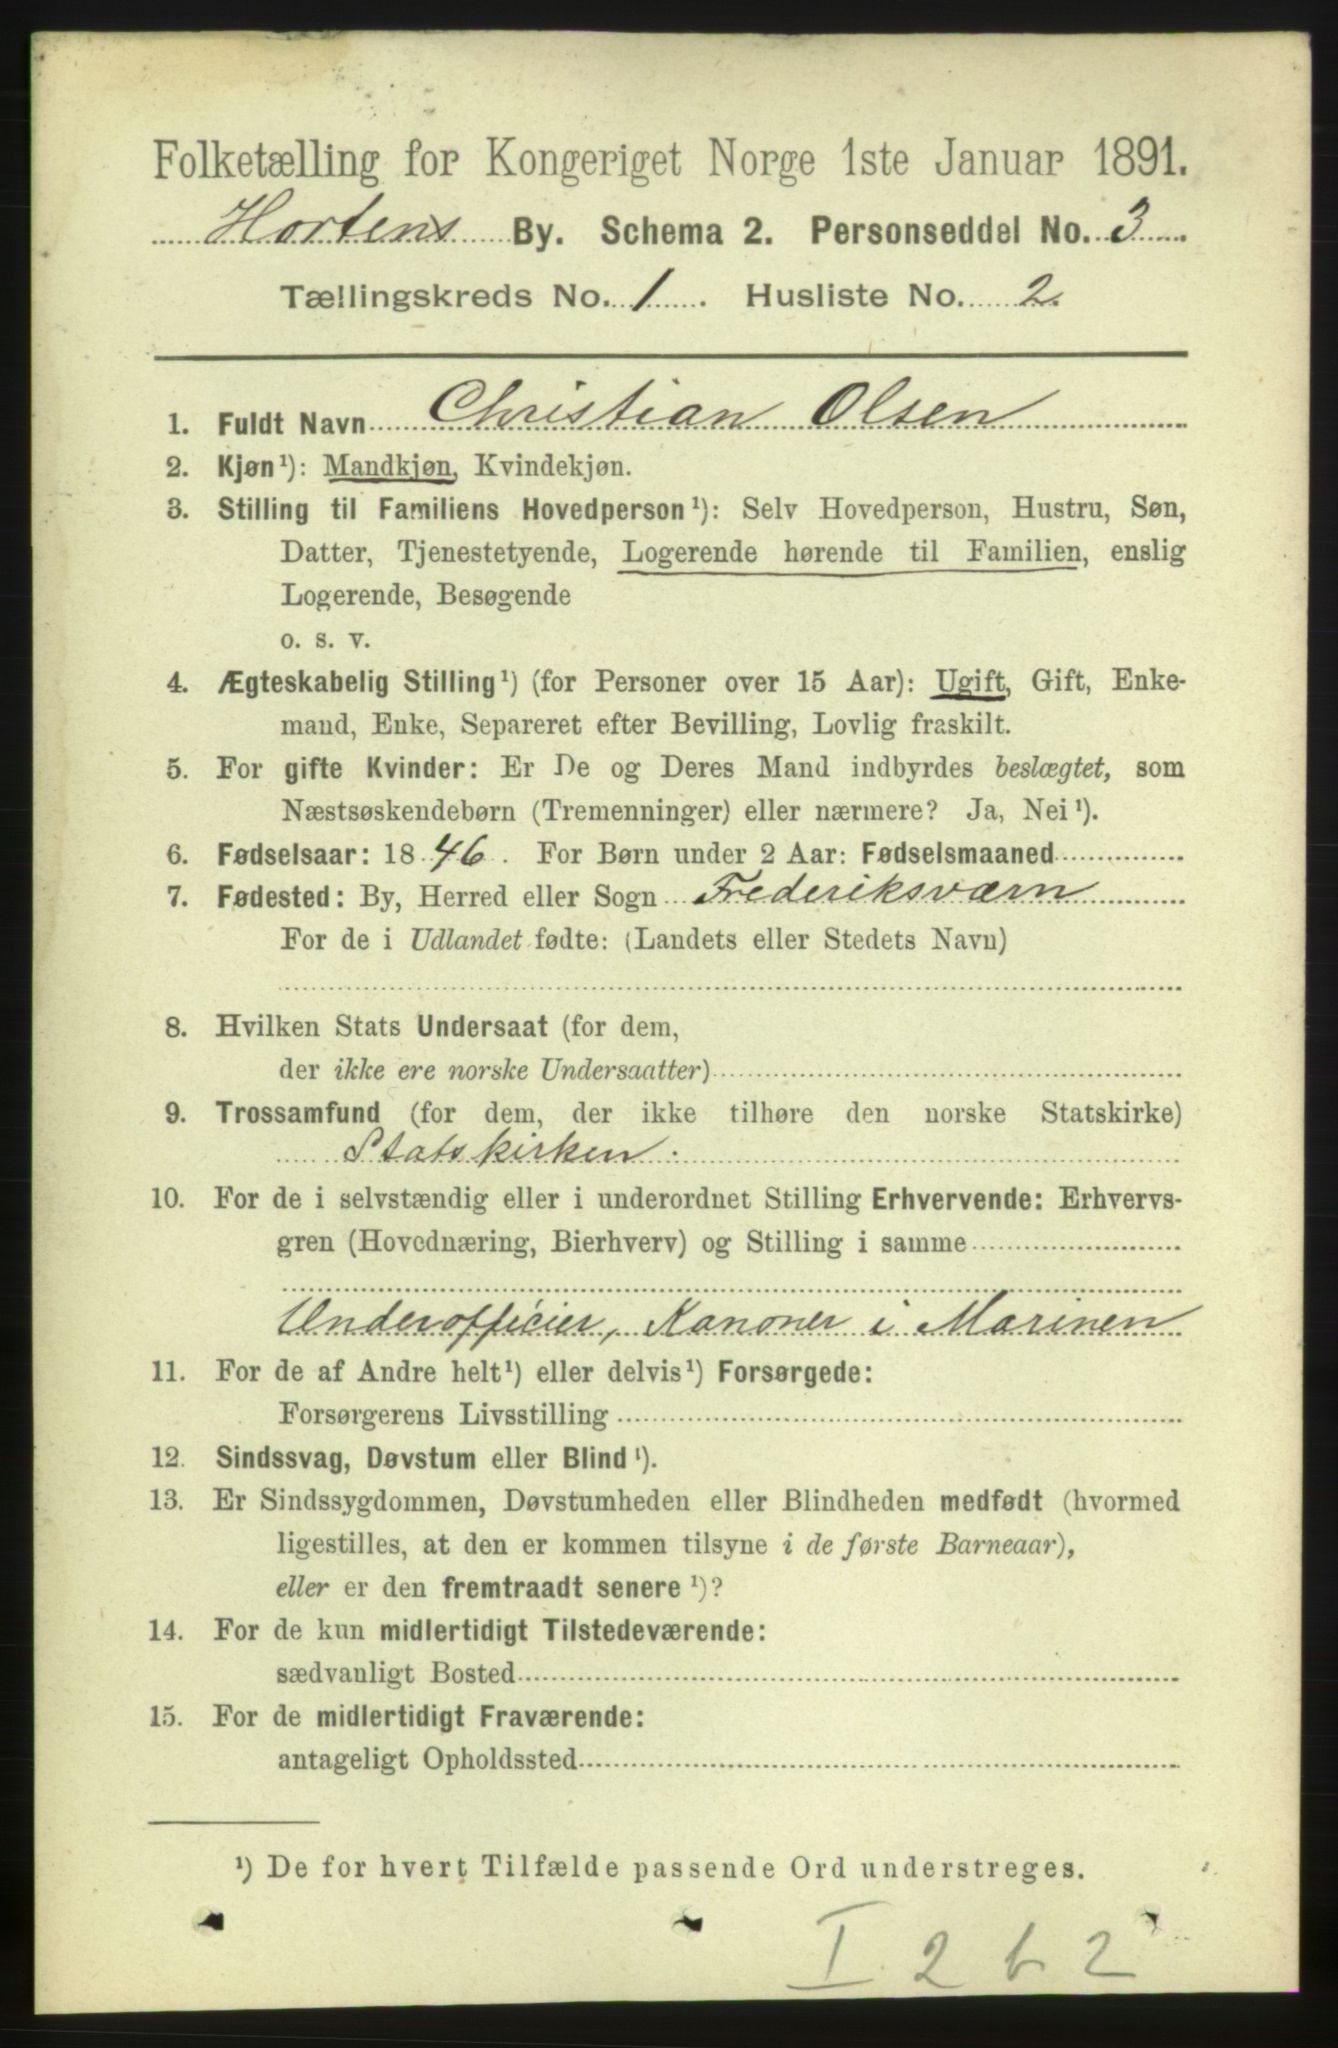 Folketælling for Kongeriget Norge 1ste Januar 1891.
Hortens By. Schema 2. Personseddel No. 3
Tællingskreds No. 1. Husliste No. 2.
1. Fuldt Navn Christian Olsen
2. Kjøn¹): Mandkjøn, Kvindekjøn.
3. Stilling til Familiens Hovedperson¹): Selv Hovedperson, Hustru, Søn,
Datter, Tjenestetyende, Logerende hørende til Familien, enslig
Logerende, Besøgende
o. s. v.
4. Ægteskabelig Stilling¹) (for Personer over 15 Aar): Ugift, Gift, Enke-
mand, Enke, Separeret efter Bevilling, Lovlig fraskilt.
5. For gifte Kvinder: Er De og Deres Mand indbyrdes beslægtet, som
Næstsøskendebørn (Tremenninger) eller nærmere? Ja, Nei¹).
6. Fødselsaar: 1846. For Børn under 2 Aar: Fødselsmaaned
7. Fødested: By, Herred eller Sogn Frederiksværn
For de i Udlandet fødte: (Landets eller Stedets Navn)
8. Hvilken Stats Undersaat (for dem,
der ikke ere norske Undersaatter)
9. Trossamfund (for dem, der ikke tilhøre den norske Statskirke)
Statskirken.
10. For de i selvstændig eller i underordnet Stilling Erhvervende: Erhvervs-
gren (Hovednæring, Bierhverv) og Stilling i samme
Underofficier, Kanoner i Marinen
11. For de af Andre helt¹) eller delvis¹) Forsørgede:
Forsørgerens Livsstilling
12. Sindssvag, Døvstum eller Blind¹).
13. Er Sindssygdommen, Døvstumheden eller Blindheden medfødt (hvormed
ligestilles, at den er kommen tilsyne i de første Barneaar),
eller er den fremtraadt senere¹)?
14. For de kun midlertidigt Tilstedeværende:
sædvanligt Bosted
15. For de midlertidigt Fraværende:
antageligt Opholdssted
¹) De for hvert Tilfælde passende Ord understreges.
I 2 b 2